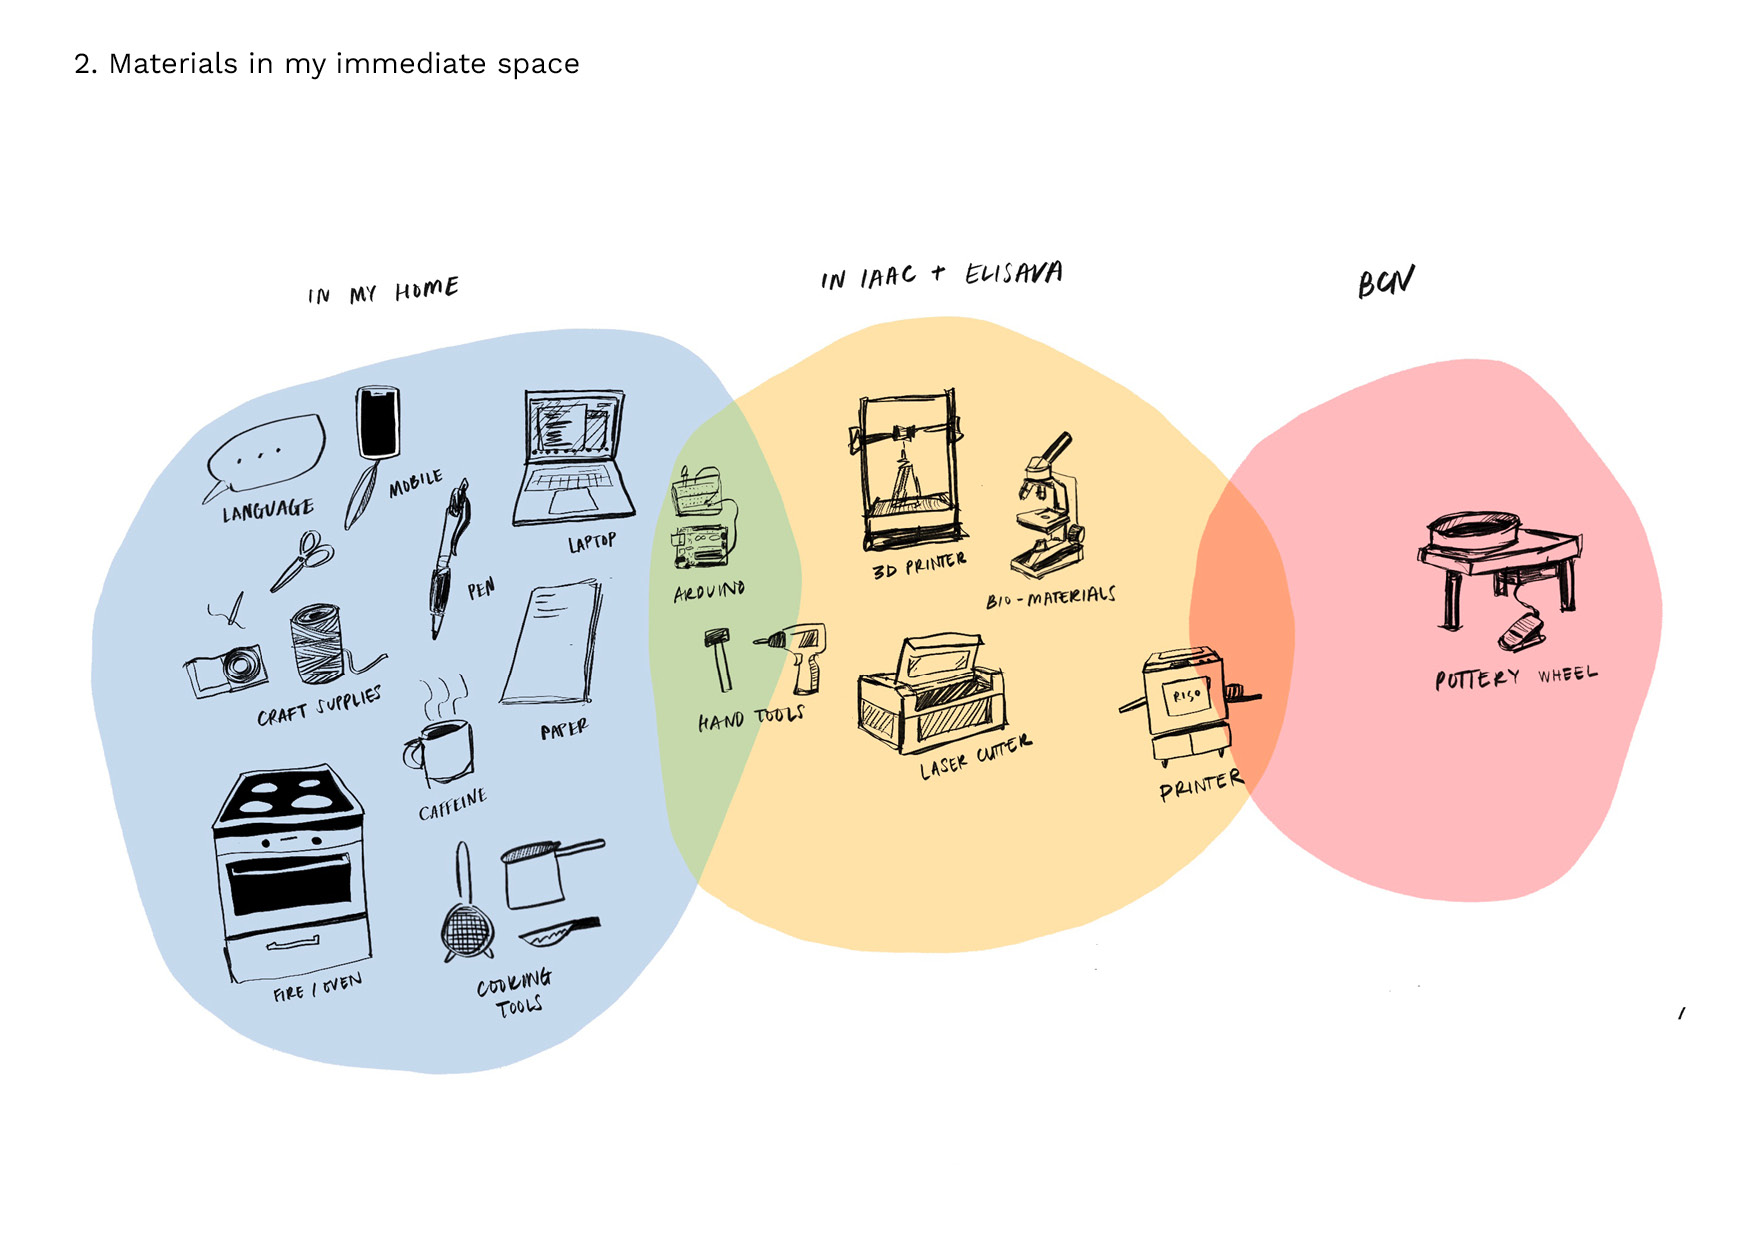 2. Materials in my immediate space
IN MY HOME
IN IAAC + ELISAVA
BCN
LANGUAGE
MOBILE
LAPTOP
PEN
CRAFT SUPPLIES
PAPER
CAFFEINE
FIRE / OVEN
COOKING
TOOLS
ARDUINO
HAND TOOLS
3D PRINTER
BIO-MATERIALS
LASER CUTTER
RISO
PRINTER
POTTERY WHEEL